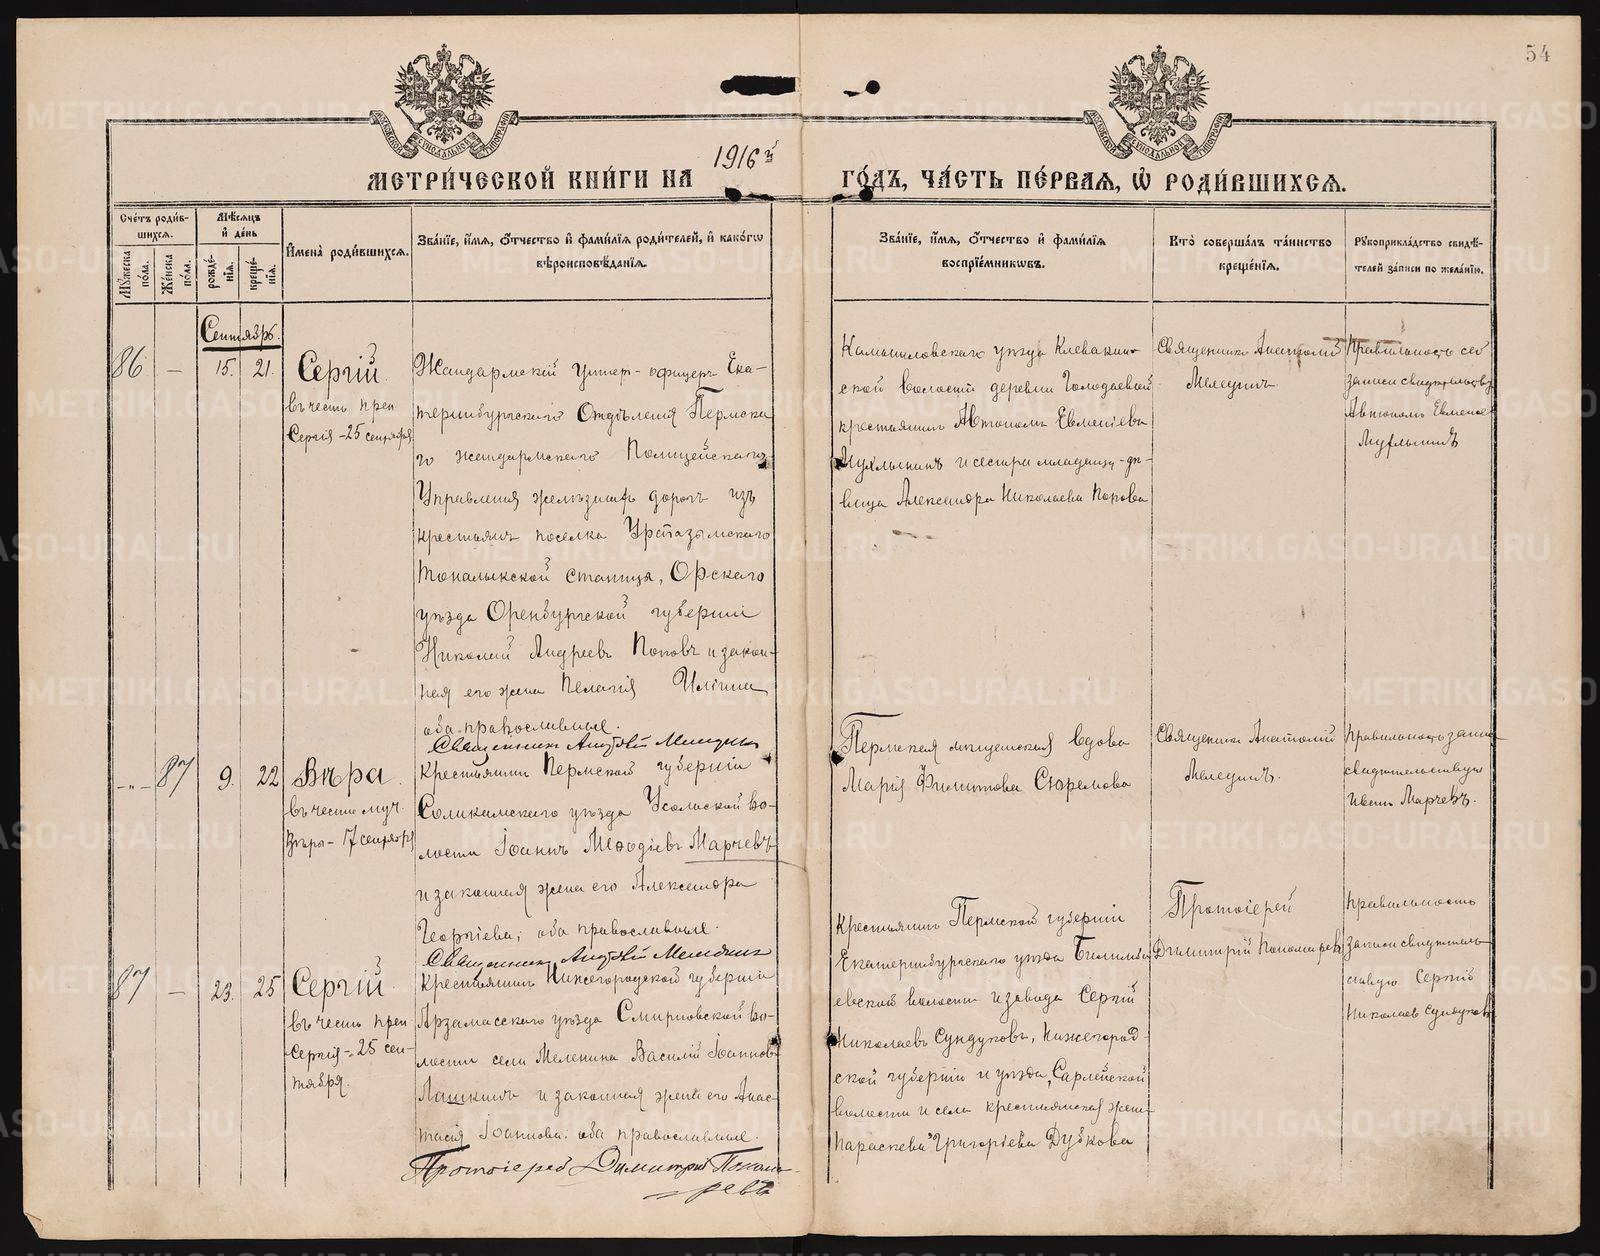 54
МЕТРИ́ЧЕСКОЙ КНИ́ГИ НА 1916 й ГО́ДЪ, ЧА́СТЬ ПЕ́РВАЯ, Ѡ҆ РОДИ́ВШИХСЯ.
Сче́тъ роди́в-
шихся.
Му́жеска по́ла.
Же́нска по́ла.
Мѣ́сяцъ
и҆ де́нь
рожде́-
нїя.
креще́-
нїя.
И҆мена̀ роди́вшихся.
Зва́нїе, и҆́мя, ѻ҆́тчество и҆ фами́лїя роди́телей, и҆ како́гѡ
вѣроисповѣ́данїя.
Зва́нїе, и҆́мя, ѻ҆́тчество и҆ фами́лїя
воспрїе́мникѡвъ.
Кто̀ соверша́лъ та́инство
креще́нїя.
Рꙋкоприкла́дство свидѣ́-
телей за́писи по жела́нїю.
Сентябрь.
86 — 15. 21.
Сергій
въ честь преп
Сергія - 25 сентября
Жандармскій унтер-офицеръ Ека-
теринбургскаго Отдѣленія Пермска
го жандармскаго Полицейскаго
Управленія желѣзныхъ дорогъ изъ
крестьянъ поселка Уртазымскаго
Таналыкской станицы, Орскаго
уѣзда Оренбургской губерніи
Николай Андреевъ Поповъ и закон-
ная его жена Пелагія Иліина
оба православные.
Священникъ Анатолій Мелединъ
Камышловскаго уѣзда Клевакин-
ской волости деревни Голодаевой
крестьянинъ Автономъ Евменіевъ
Мухлынинъ и сестра младенца - дѣ-
вица Александра Николаева Попова
Священникъ Анатолій
Мелединъ
Правильность сей
записи свидѣтельствую
Автономъ Евменіев
Мухлынинъ
-„- 87 9. 22
Вѣра.
въ честь муч.
Вѣры - 17 сентября
Крестьянинъ Пермской губерніи
Соликамскаго уѣзда Усольской во-
лости Іоаннъ Меѳодіевъ Марчевъ
и законная жена его Александра
Георгіева; оба православные.
Священникъ Анатолій Меледин
Пермская мѣщанская вдова
Марія Филиппова Ефремова
Священникъ Анатолій
Мелединъ.
Правильность запи-
свидѣтельствую
Иванъ Марчевъ.
87 — 23. 25
Сергій.
въ честь преп
Сергія - 25 сен-
тября.
Крестьянинъ Нижегородской губерніи
Арзамасскаго уѣзда Смирновской во-
лости села Меленина Василій Іоаннов
Лашкинъ и законная жена его Анас-
тасія Іоаннова: оба православные.
Протоіерей Димитрій Понома-
ревъ
Крестьянинъ Пермской губерніи
Екатеринбургскаго уѣзда Билимба
евской волости и завода Сергій
Николаевъ Сундуковъ, Нижегород-
ской губерніи и уѣзда, Сарлейской
волости и села крестьянская жена
Параскева Григорьева Дубкова
Протоіерей
Димитрій Пономаревъ
Правильность
записи свидѣтель-
ствую Сергѣй
Николаев Сундуковъ
METRIKI.GASO-URAL.RU